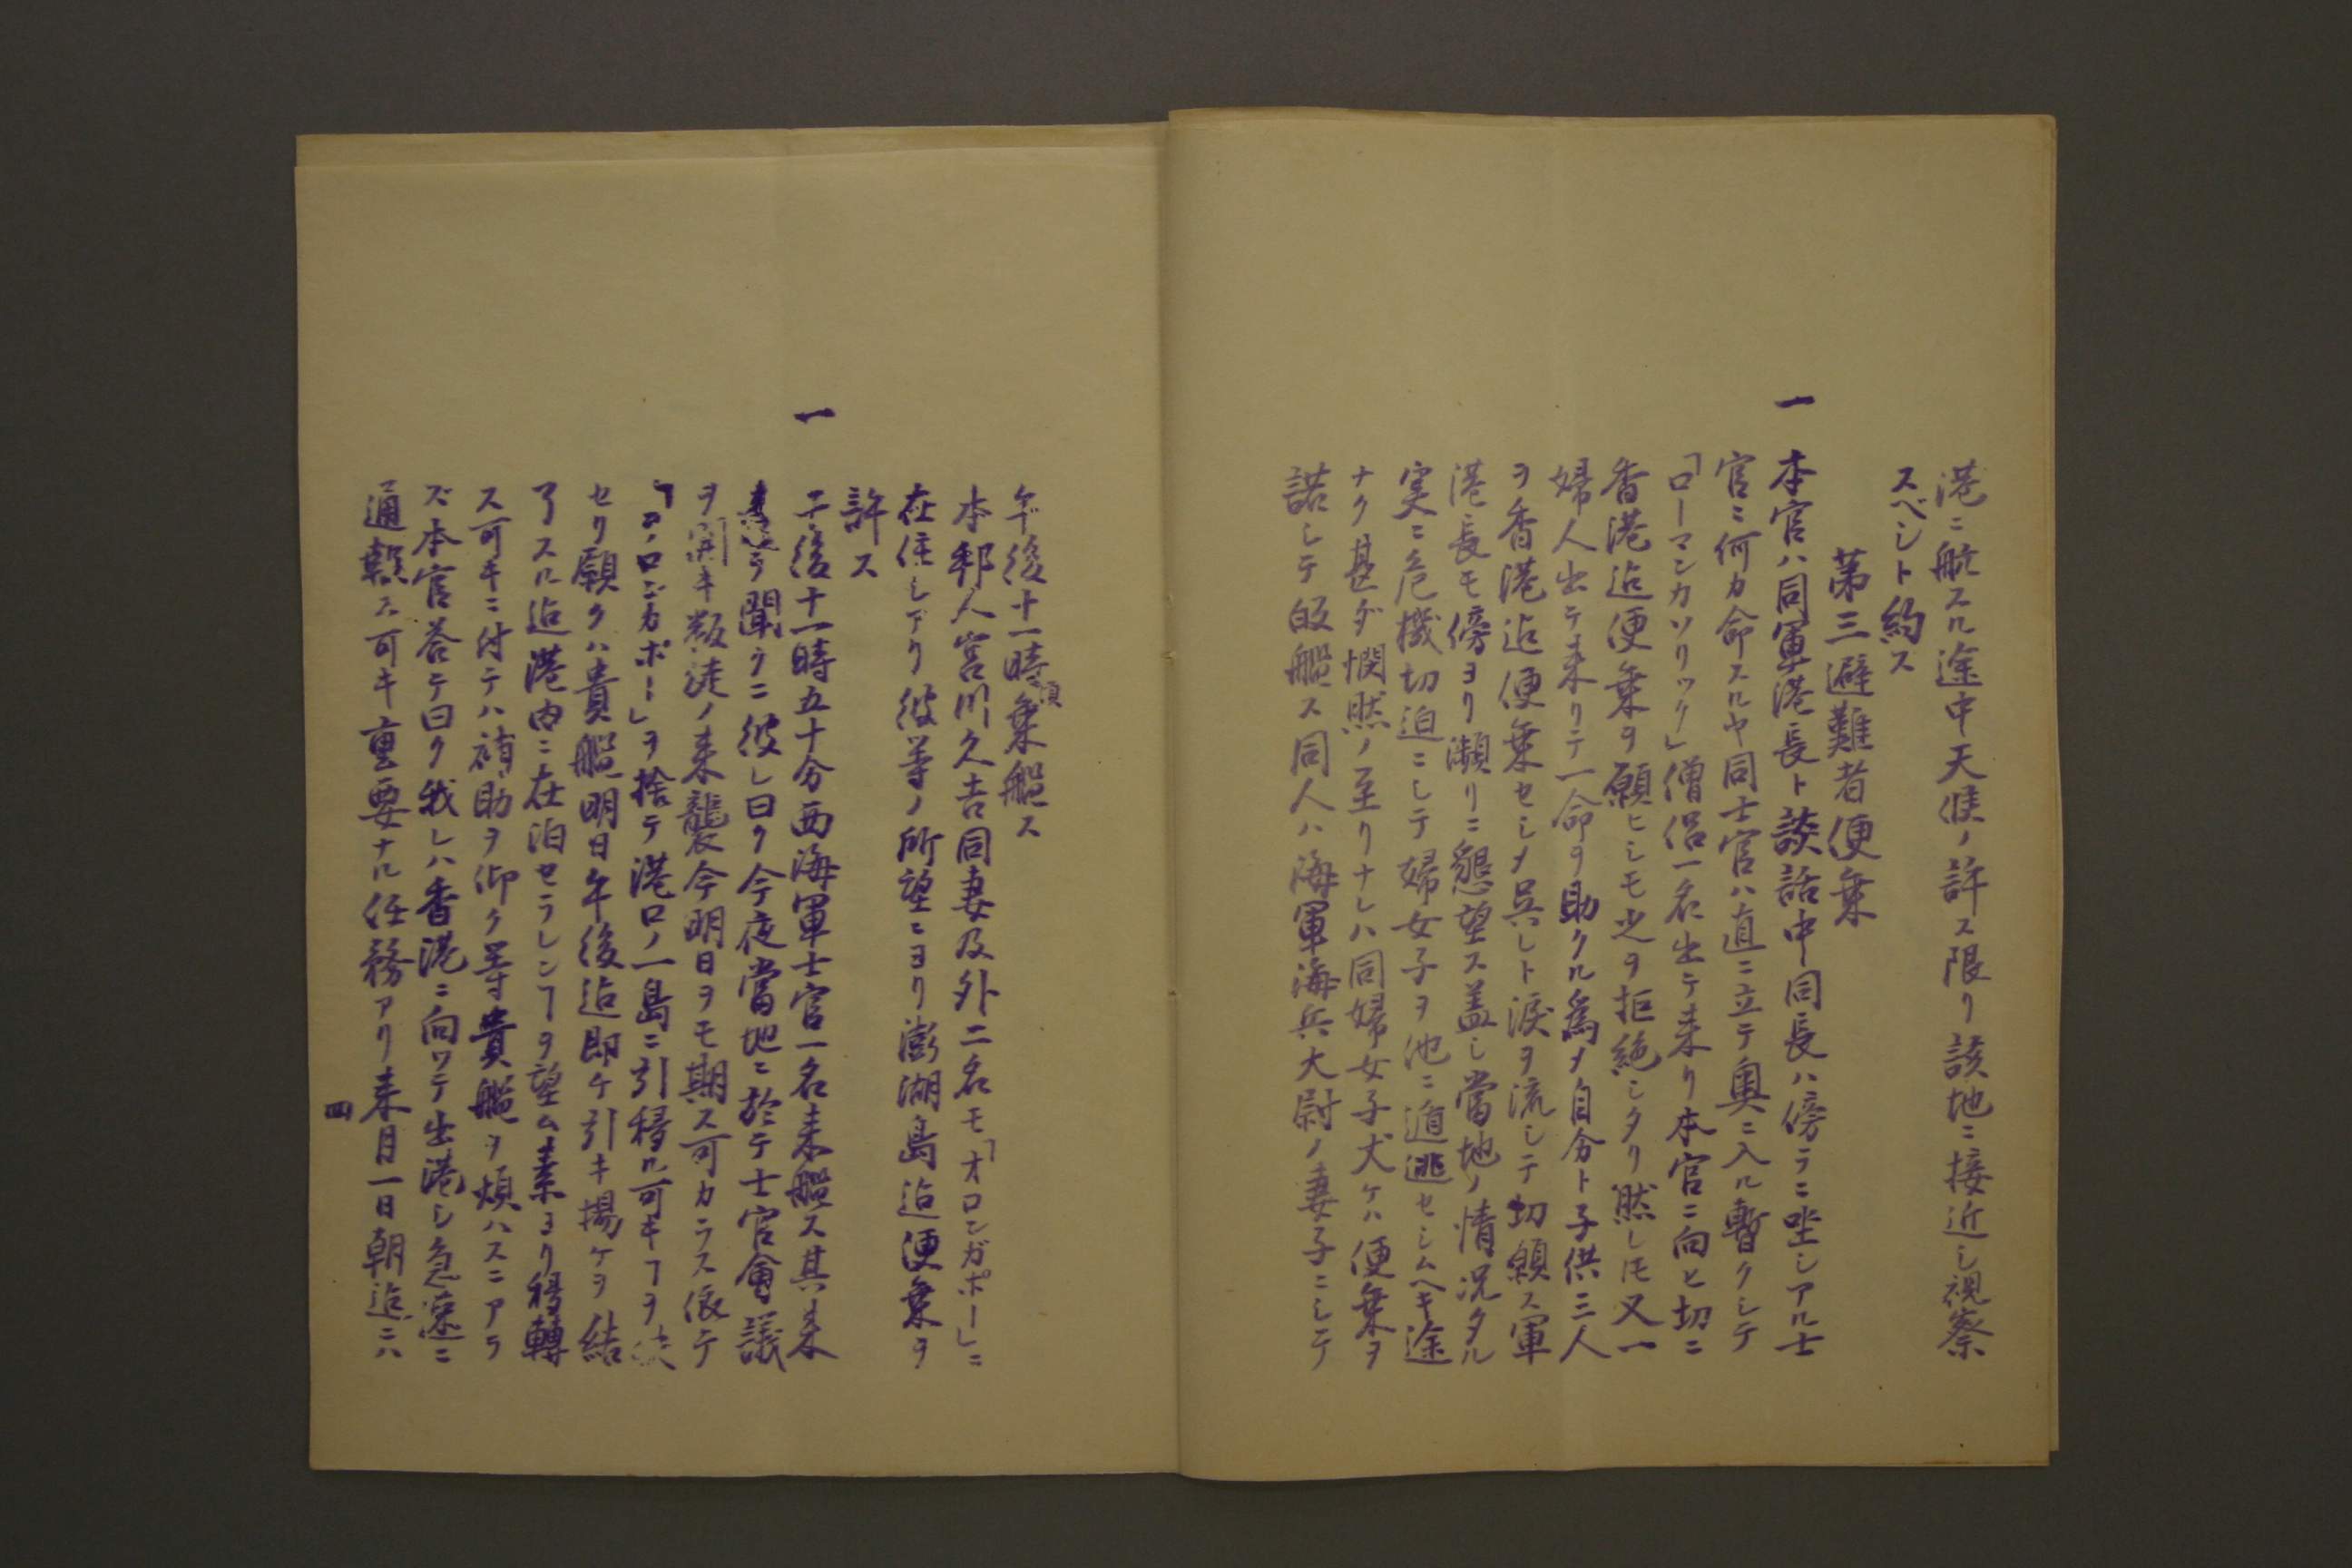 港ニ航スル途中天候ノ許ス限リ該地ニ接近シ視察
スベシト約ス
第三避難者便乗
一 本官ハ同軍港長ト談話中同長ハ傍ラニ坐シアル士
官ニ何カ命スルヤ同士官ハ直ニ立テ奥ニ入ル暫クシテ
「ローマンカソリック」僧侶一名出テ来リ本官ニ向ヒ切ニ
香港迠便乗ヲ願ヒシモ之ヲ拒絶シタリ然レ𪜈又一
婦人出テ来リテ一命ヲ助クル為メ自分ト子供三人
ヲ香港迠便乗セシメ呉レト涙ヲ流シテ切願ス軍
港長モ傍ヨリ瀕リニ懇望ス盖シ當地ノ情况タル
実ニ危機切迫ニシテ婦女子ヲ他ニ遁逃セシムヘキ途
ナク甚ダ憫然ノ至リナレハ同婦女子丈ケハ便乗ヲ
諾シテ皈艦ス同人ハ海軍海兵大尉ノ妻子ニシテ
午後十一時頃乗艦ス
本邦人宮川久吉同妻及外二名モ「オロンガポー」ニ
在住シアリ彼等ノ所望ニヨリ澎湖島迠便乗ヲ
許ス
一 午後十一時五十分西海軍士官一名来艦ス其来
意ヲ聞クニ彼レ曰ク今夜當地ニ於テ士官會議
ヲ開キ叛徒ノ来襲今明日ヲモ期ス可カラス依テ
「オロンガポー」ヲ捨テ港口ノ一島ニ引移ル可キヿヲ决
セリ願クハ貴艦明日午後迠即ケ引キ揚ケヲ結
了スル迠港内ニ在泊セラレンヿヲ望ム素ヨリ移轉
ス可キニ付テハ補助ヲ仰ク等貴艦ヲ煩ハスニアラ
ズ本官答テ曰ク我レハ香港ニ向ツテ出港シ急速ニ
通報ス可キ重要ナル任務アリ来月一日朝迠ニハ
四